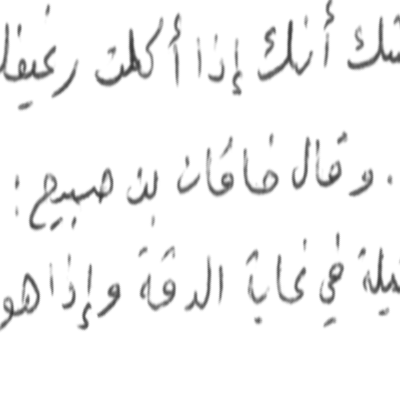 أنك إذا أكلت رغيفا
. وقال خاقان بن صبيح :
في نهاية الدقة وإذا هو